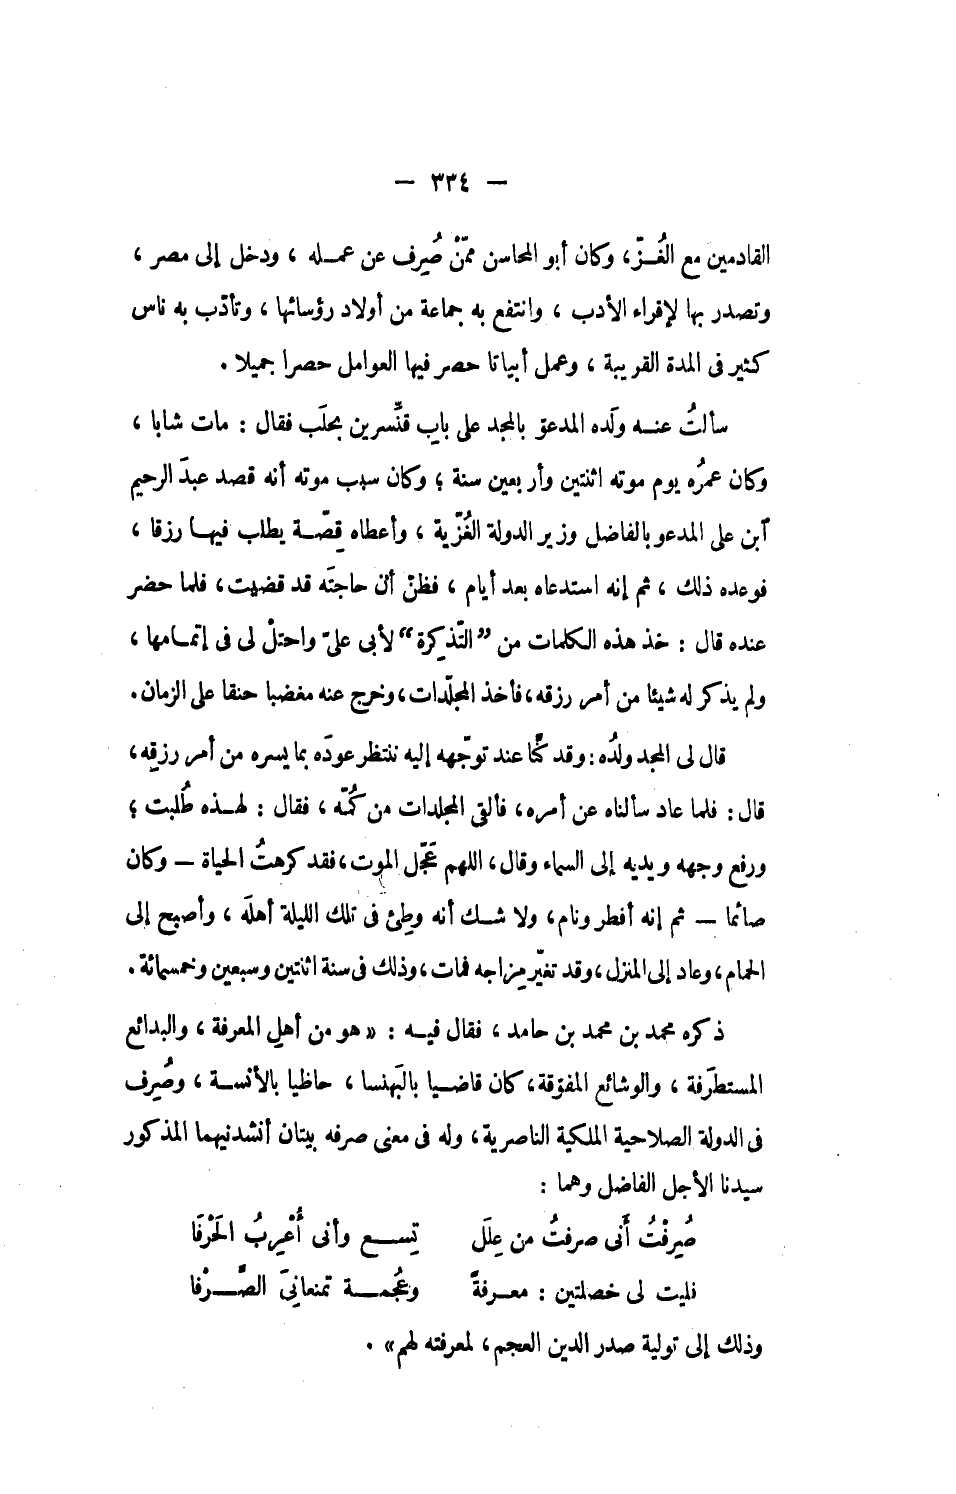 — ٣٣٤ —
القادمين مع الغُـزّ، وكان أبو المحاسن ممّنْ صُرِف عن عمـله ، ودخل إلى مصر ،
وتصدر بها لإقراء الأدب ، وانتفع به جماعة من أولاد رؤسائها ، وتأدّب به ناس
كثير فى المدة القريبة ، وعمل أبياتا حصر فيها العوامل حصرا جميلا .
سألتُ عنـه ولَده المدعوّ بالمجد على بابِ قنَّسرين بحلَب فقال : مات شابا ،
وكان عمرُه يوم موته اثنتين وأربعين سنة ؛ وكان سبب موته أنه قصد عبدَ الرحيم
آبن على المدعو بالفاضل وزير الدولة الغُزّية ، وأعطاه قِصّـة يطلب فيهـا رزقا ،
فوعده ذلك ، ثم إنه استدعاه بعد أيام ، فظنّ أنّ حاجتَه قد قضيت ، فلما حضر
عنده قال : خذ هذه الكلمات من ”التّذكِرة“ لأبى علىّ واحتلْ لى فى إتمـامها ،
ولم يذكر له شيئا من أمر رزقه ، فأخذ المجلّدات ، وخرج عنه مغضبا حنقا على الزمان .
قال لى المجد ولدُه : وقد كنَّا عند توجّهه إليه ننتظر عودَه بما يسره من أمر رزقِه ،
قال : فلما عاد سألناه عن أمره ، فألقى المجلدات من كُمّه ، فقال : لهـذه طُلبت ؛
ورفع وجهه ويديه إلى السماء وقال ، اللهم عَجّل الموت ، فقد كرهتُ الحياة — وكان
صائما — ثم إنه أفطر ونام ، ولا شـك أنه وطِئ فى تلك الليلة أهلَه ، وأصبح إلى
الحمام ، وعاد إلى المنزل ، وقد تغيّر مِزاجه فمات ، وذلك فى سنة اثنتين وسبعين وخمسمائة .
ذكره محمد بن محمد بن حامد ، فقال فيـه : «هو من أهلِ المعرفة ، والبدائع
المستطرَفة ، والوشائع المفوّقة ، كان قاضـيا بالبَهنسا ، حاظيا بالأنسـة ، وصُرِف
فى الدولة الصلاحية الملكية الناصرية ، وله فى معنى صرفه بيتان أنشدنيهما المذكور
سيدنا الأجل الفاضل وهما :
صُرِفْتُ أَنى صرفتُ من عِلَلٍ    تِســـع وأنى أُعْرِبُ الحَرْفَا
فليت لى خصلتين : معـرفةً    وعُجمـــة تمنعانِىَ الصَّـــرْفا
وذلك إلى تولية صدر الدين العجم ، لمعرفته لهم» .